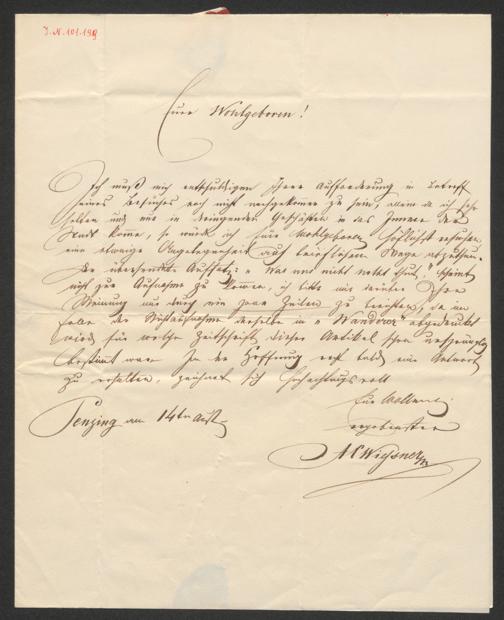 I.N. 101.199
Euer Wohlgeboren!
Ich muß mich entschuldigen Ihrer Aufforderung in Betreff
eines Besuches noch nicht nachgekommen zu sein, allein da ich sehr
selten und nur in dringenden Geschäften in das Innere der
Stadt komme, so würde ich Euer Wohlgeboren höflichst ersuchen,
eine etwaige Angelegenheit auf brieflichem Wege abzuthun.
Der übersendete Aufsatz: „Was uns nicht noth thut," scheint
nicht zur Aufnahme zu kommen, ich bitte mir darüber Ihre
Meinung nur durch ein paar Zeilen zu berichten, da im
Falle der Nichtaufnahme derselbe im „Wanderer" abgedruckt
wird für welche Zeitschrift dieser Artikel schon ursprünglich
bestimmt war. In der Hoffnung recht bald eine Antwort
zu erhalten, zeichnet sich hochachtungsvoll
Penzing am 14ten Aust
Euer Wohlgeb.
ergebenster